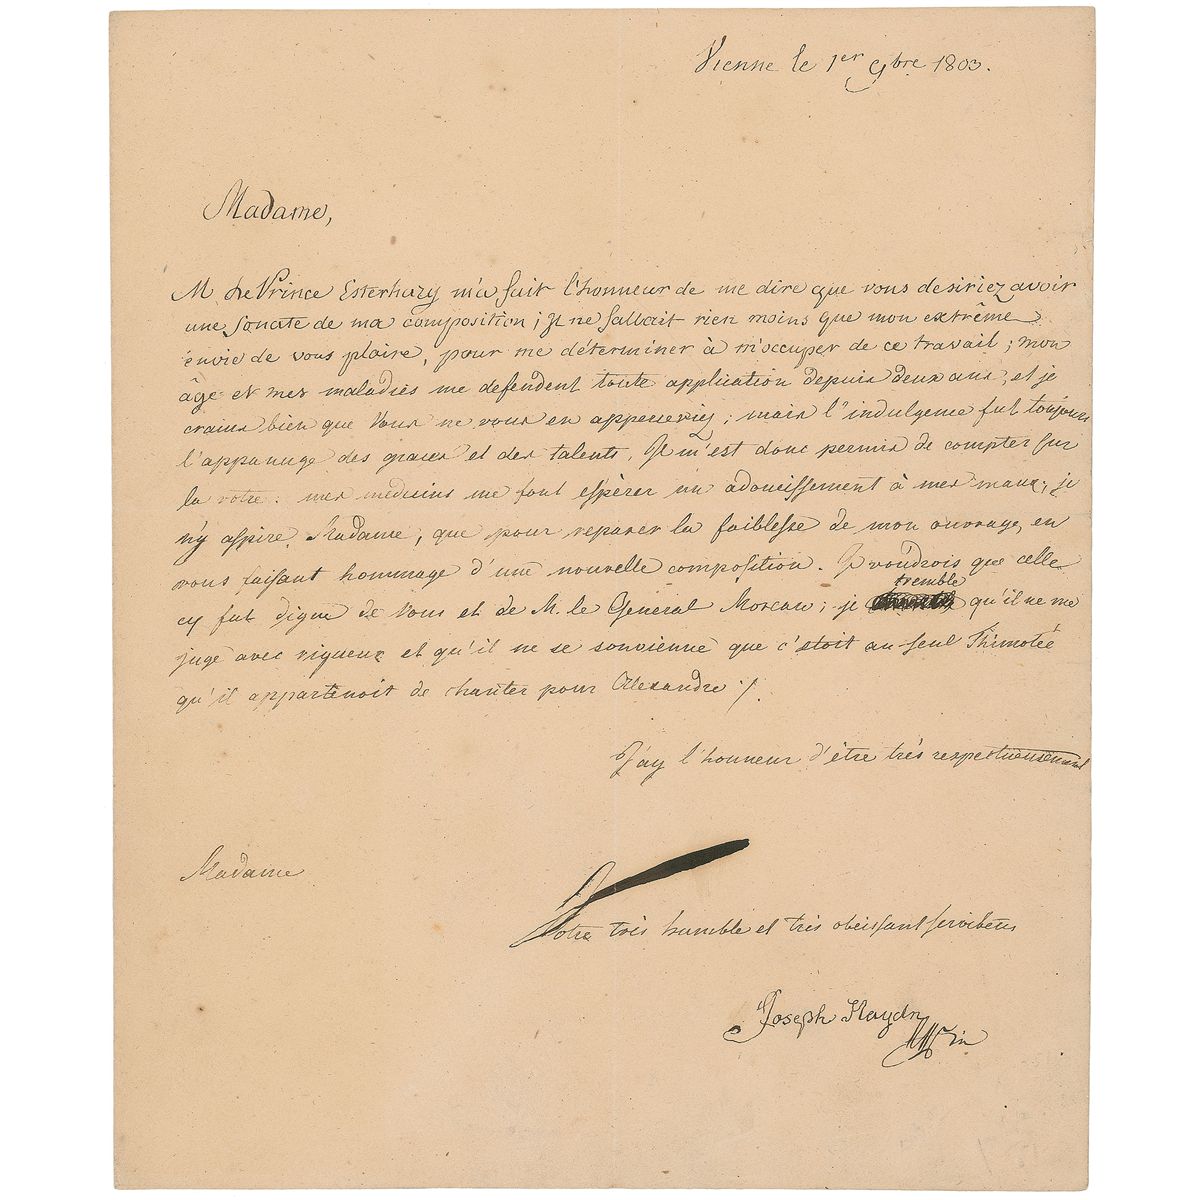 Vienne le 1er 9bre 1803.
Madame,
M. le Prince Esterhazy m'a fait l'honneur de me dire que vous desiriez avoir
une sonate de ma composition; Il ne fallait rien moins que mon extrême
envie de vous plaire, pour me déterminer à m'occuper de ce travail; mon
âge et mes maladies me defendent toute application depuis deux ans, et je
crains bien que Vous ne vous en apperceviez; mais l'indulgence fut toujours
l'appanage des graces et des talents. Il m'est donc permis de compter sur
la votre. mes medecins me font espérer un adoucissement à mes maux; je
n'y aspire, Madame, que pour reparer la faiblesse de mon ouvrage, en
vous faisant hommage d'une nouvelle composition. Je voudrois que celle
cy fut digne de Vous et de M. le General Moreau; je tremble qu'il ne me
juge avec rigueur et qu'il ne se souvienne que c'étoit au seul Thimotée
qu'il appartenoit de chanter pour Alexandre ./.
J'ay l'honneur d'être très respectueusement
Madame
Votre très humble et très obeissant serviteur
Joseph Haydn